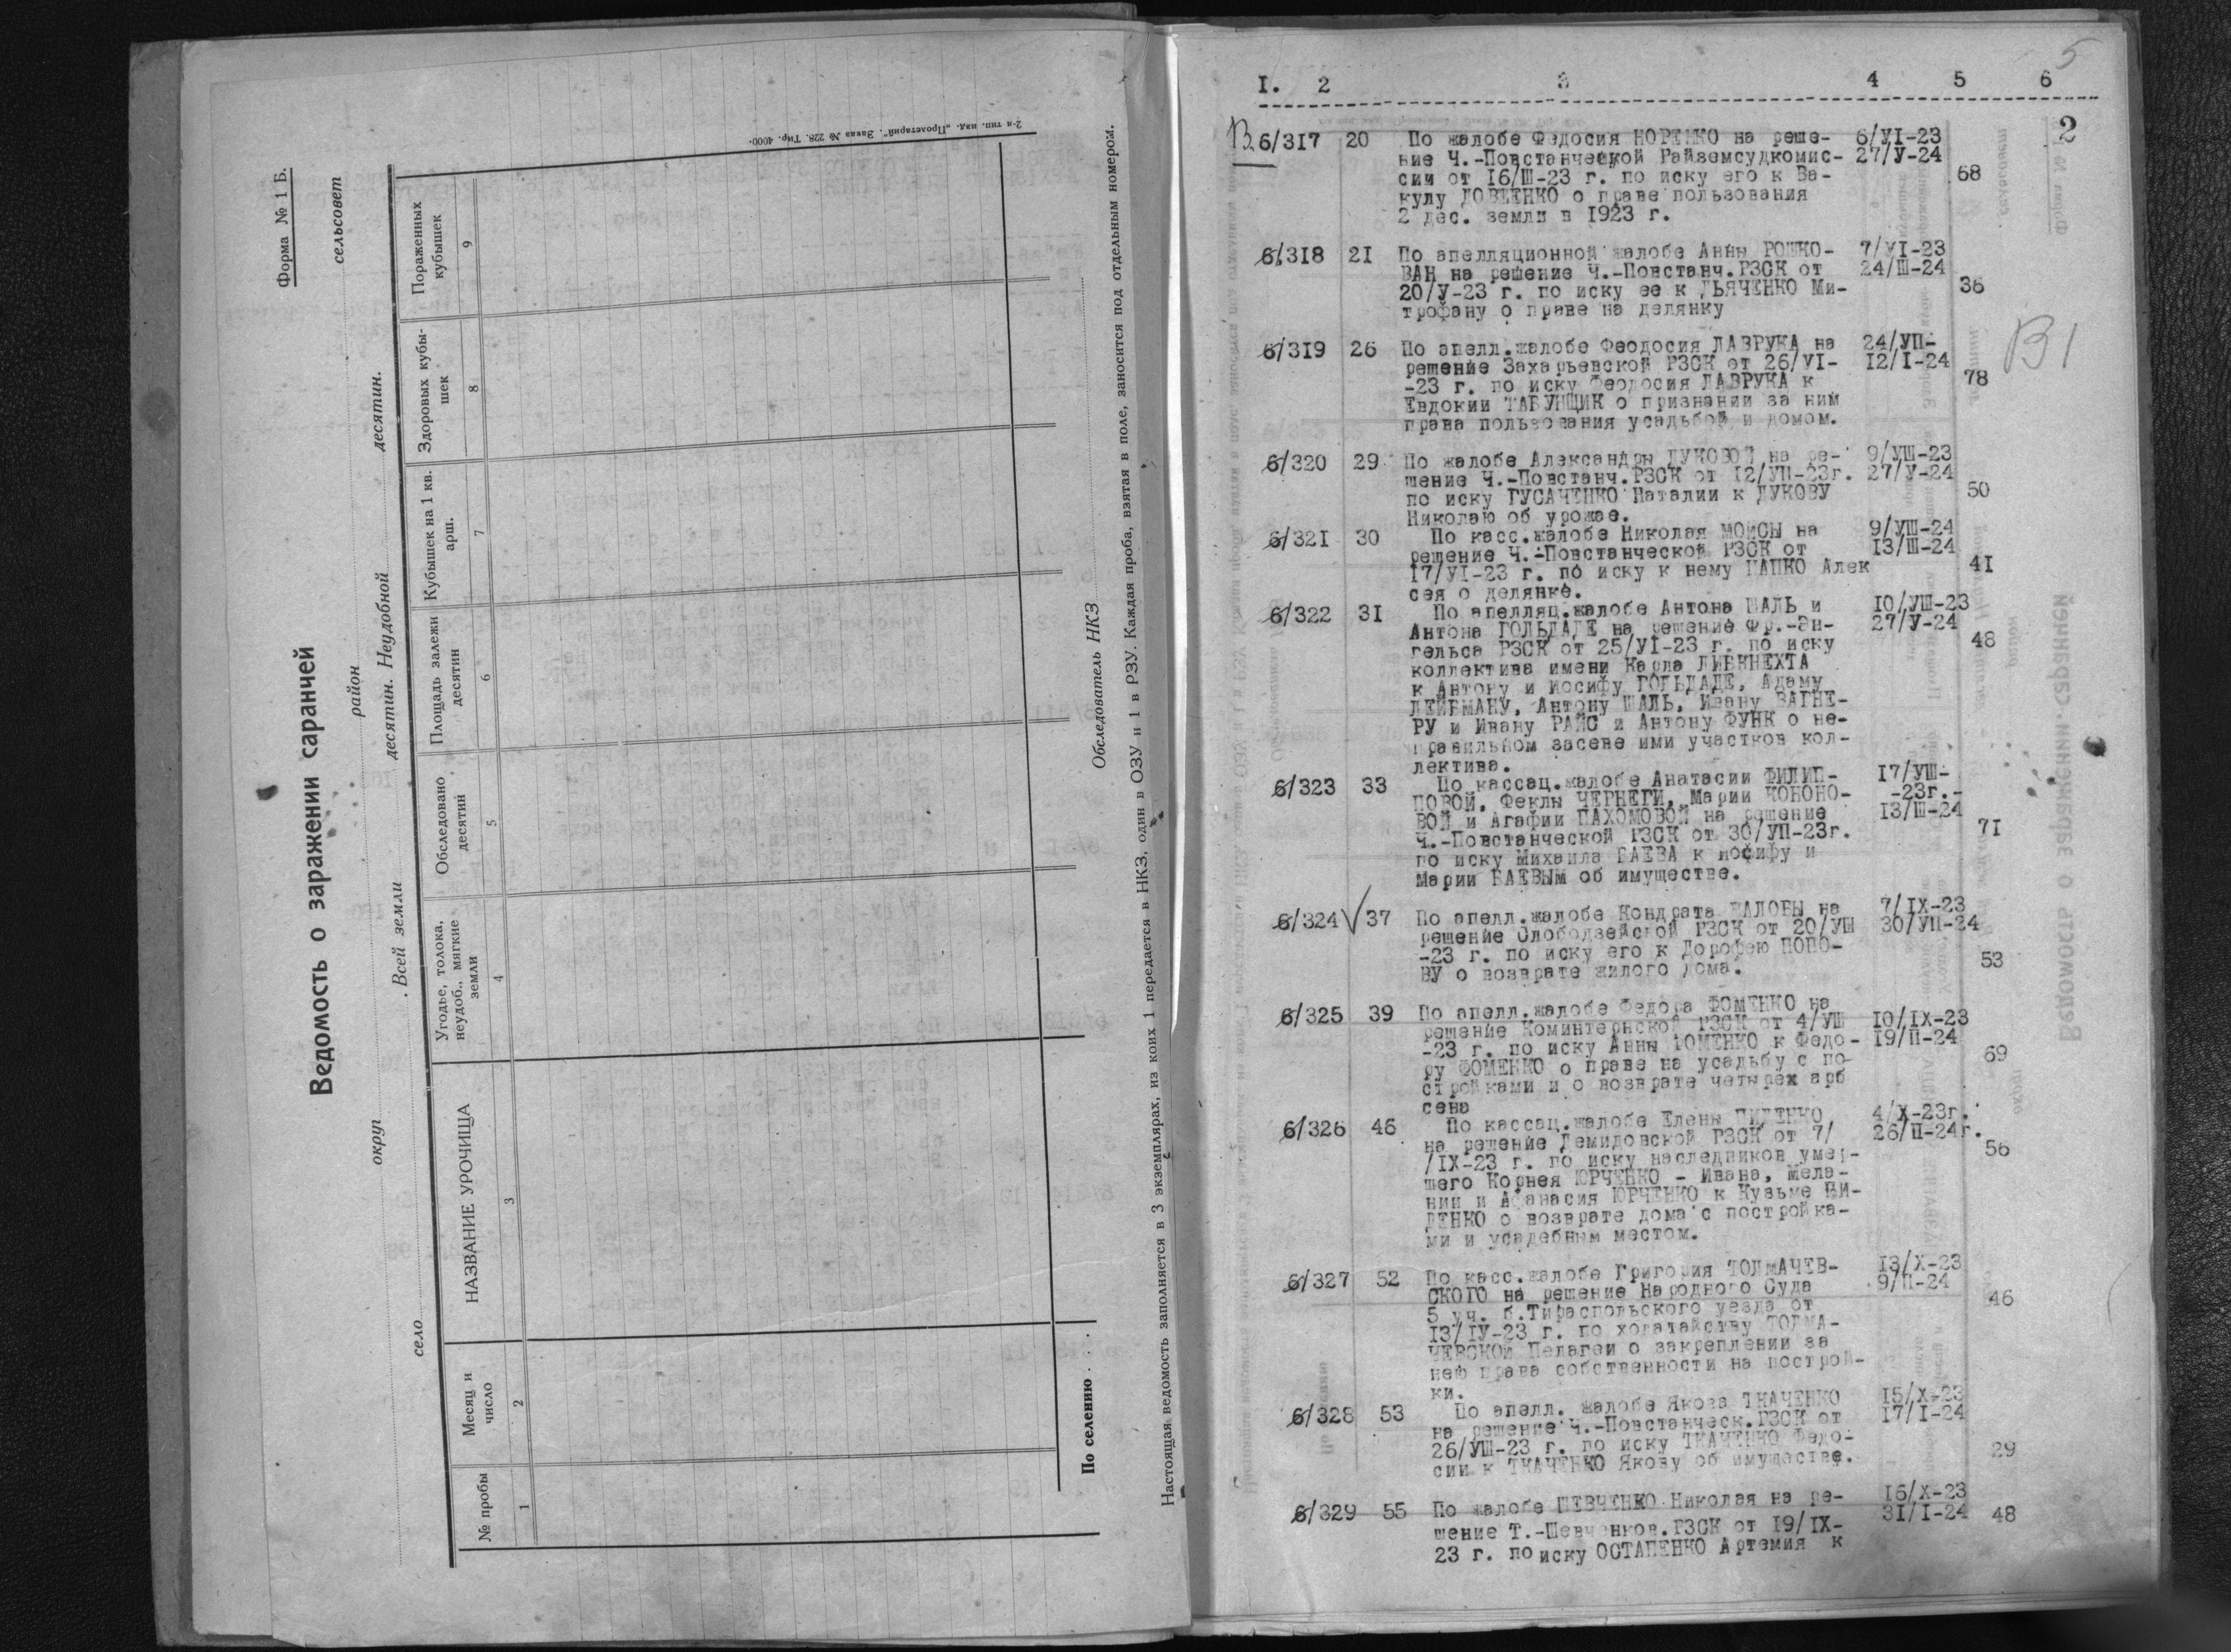 Форма № 1 Б.
Ведомость о заражении саранчей
округ район сельсовет
село . Всей земли десятин. Неудобной десятин.
№ пробы
Месяц и число
НАЗВАНИЕ УРОЧИЩА
Угодье, толока, неудоб., мягкие земли
Обследовано десятин
Площадь залежи десятин
Кубышек на 1 кв. арш.
Здоровых кубы-
шек
Пораженных кубышек
1 2 3 4 5 6 7 8 9
По селению . . .
Обследователь НКЗ
Настоящая ведомость заполняется в 3 экземплярах, из коих 1 передается в НКЗ, один в ОЗУ и 1 в РЗУ. Каждая проба, взятая в поле, заносится под отдельным номером.
2-я тип. изд. „Пролетарий". Заказ № 228. Тир. 4000.
5
I. 2 3 4 5 6
2
В. 6/317 20 По жалобе Федосия НОРЕНКО на реше- 6/УІ-23
ние Ч.-Повстанческой Райземсудкомис- 27/У-24
сии от 16/Ш-23 г. по иску его к Ва- 68
кулу ДОВТЕНКО о праве пользования
2 дес. земли в 1923 г.
6/318 21 По апелляционной жалобе Анны РОШКО- 7/УІ-23
ВАН на решение Ч.-Повстанч.РЗСК от 24/Ш-24
20/У-23 г. по иску ее к ДЬЯЧЕНКО Ми- 36
трофану о праве на делянку
В1
6/319 26 По апелл.жалобе Феодосия ЛАВРУКА на 24/УП-
решение Захарьевской РЗСК от 26/УІ- 12/І-24
-23 г. по иску Феодосия ЛАВРУКА к 78
Евдокии ТАБУНЩИК о признании за ним
права пользования усадьбой и домом.
6/320 29 По жалобе Александры ДУКОВОЙ на ре- 9/УШ-23
шение Ч.-Повстанч.РЗСК от 12/УП-23г. 27/У-24
по иску ГУСАЧЕНКО Наталии к ДУКОВУ 50
Николаю об урожае.
6/321 30 По касс.жалобе Николая МОИСЫ на 9/УШ-24
решение Ч.-Повстанческой РЗСК от 13/Ш-24
17/УІ-23 г. по иску к нему ПАПКО Алек 41
сея о делянке.
6/322 31 По апелляц.жалобе Антона ШАЛЬ и 10/УШ-23
Антона ГОЛЬДАДЕ на решение Фр.-Эн- 27/У-24
гельса РЗСК от 25/УІ-23 г. по иску 48
коллектива имени Карла ЛИБКНЕХТА
к Антону и Иосифу ГОЛЬДАДЕ, Адаму
ЛЕЙБМАНУ, Антону ШАЛЬ, Ивану ВАГНЕ-
РУ и Ивану РАЙС и Антону ФУНК о не-
правильном засеве ими участков кол-
лектива.
6/323 33 По кассац.жалобе Анатасии ФИЛИП- 17/УШ-
ПОВОЙ, Феклы ЧЕРНЕГИ, Марии КОНОНО- -23г.-
ВОЙ и Агафии ПАХОМОВОЙ на решение 13/Ш-24
Ч.-Повстанческой РЗСК от 30/УП-23г. 71
по иску Михаила БАЕВА к Иосифу и
Марии БАЕВЫМ об имуществе.
6/324 √ 37 По апелл.жалобе Кондрата ЖАЛОБЫ на 7/ІХ-23
решение Слободзейской РЗСК от 20/УШ 30/УП-24
-23 г. по иску его к Дорофею ПОПО- 53
ВУ о возврате жилого дома.
6/325 39 По апелл.жалобе Федора ФОМЕНКО на
решение Коминтернской РЗСК от 4/УШ 10/ІХ-23
-23 г. по иску Анны ФОМЕНКО к Федо- 19/П-24
ру ФОМЕНКО о праве на усадьбу с по- 69
стройками и о возврате четырех арб
сена
6/326 46 По кассац.жалобе Елены ПИДЕНКО 4/Х-23г.
на решение Демидовской РЗСК от 7/ 26/П-24г.
/ІХ-23 г. по иску наследников умер- 56
шего Корнея ЮРЧЕНКО - Ивана, Мела-
нии и Афанасия ЮРЧЕНКО к Кузьме ПИ-
ДЕНКО о возврате дома с постройка-
ми и усадебным местом.
6/327 52 По касс.жалобе Григория ТОЛМАЧЕВ- 13/Х-23
СКОГО на решение Народного Суда 9/П-24
5 уч. б.Тираспольского уезда от 46
13/ІУ-23 г. по ходатайству ТОЛМА-
ЧЕВСКОЙ Пелагеи о закреплении за
нею права собственности на построй-
ки.
6/328 53 По апелл. жалобе Якова ТКАЧЕНКО 15/Х-23
на решение Ч.-Повстанческ.РЗСК от 17/І-24
26/УШ-23 г. по иску ТКАЧЕНКО Федо- 29
сии к ТКАЧЕНКО Якову об имуществе.
6/329 55 По жалобе ШЕВЧЕНКО Николая на ре- 16/Х-23
шение Т.-Шевченков.РЗСК от 19/ІХ- 31/І-24 48
23 г. по иску ОСТАПЕНКО Артемия к